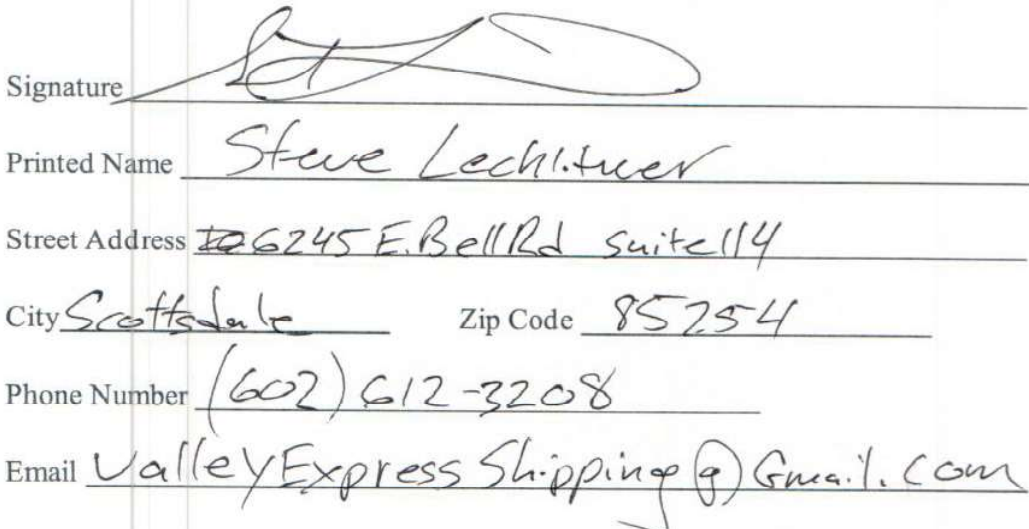 Signature
Printed Name Steve Lechlitner
Street Address 6245 E. Bell Rd suite 114
City Scottsdale Zip Code 85254
Phone Number (602) 612-3208
Email ValleyExpressShipping@Gmail.com